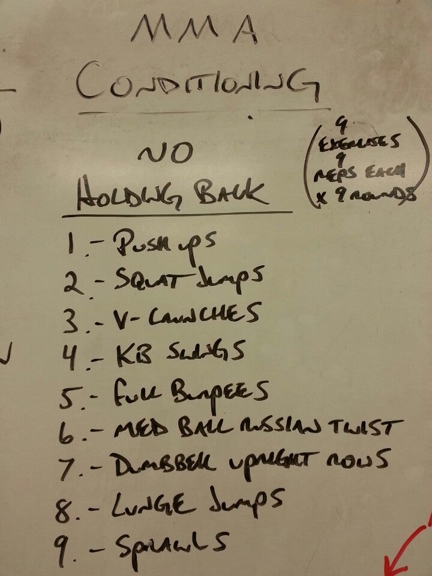 MMA
CONDITIONING
NO
HOLDING BACK
(9
EXERCISES
9
REPS EACH
x 9 ROUNDS)
1.- PUSH UPS
2.- SQUAT JUMPS
3.- V-LAUNCHES
4.- KB SWINGS
5.- FULL BURPEES
6.- MED BALL RUSSIAN TWIST
7.- DUMBBELL UPRIGHT ROWS
8.- LUNGE JUMPS
9.- SPRAWLS